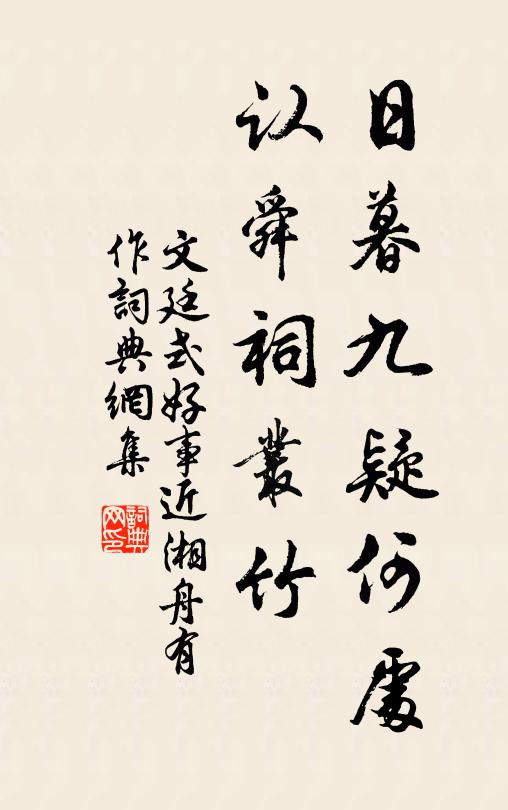 日暮九疑何處
认舜祠叢竹
文廷式好事近湘舟有
作詞典網集
詞典网印